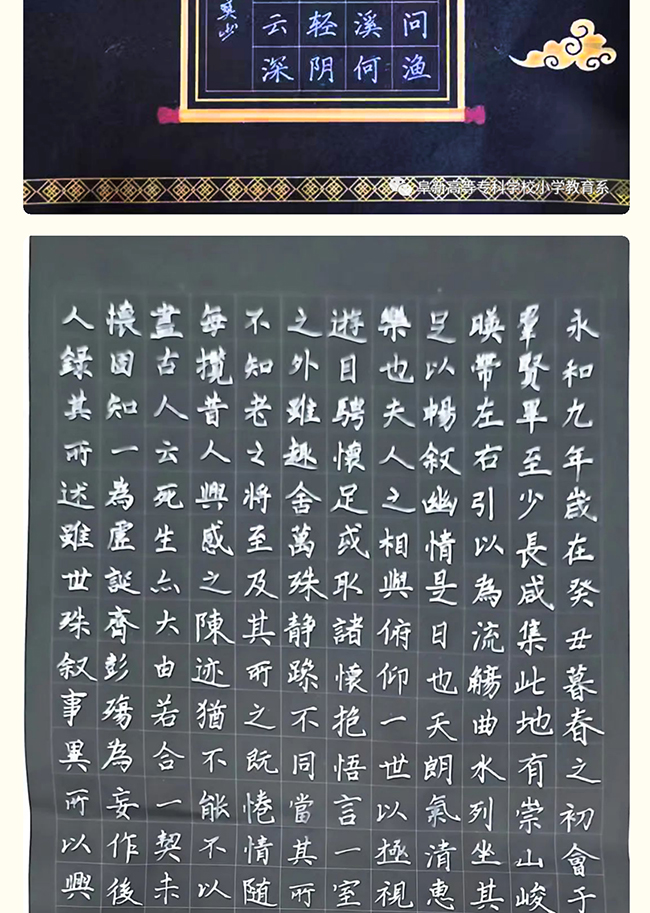 问渔
溪何
轻阴
云深
阜新高等专科学校小学教育系
永和九年歲在癸丑暮春之初會于
羣賢畢至少長咸集此地有崇山峻
暎帶左右引以為流觴曲水列坐其
足以暢叙幽情是日也天朗氣清惠
樂也夫人之相與俯仰一世以極視
遊目騁懷足或取諸懷抱悟言一室
之外雖趣舍萬殊静躁不同當其所
不知老之將至及其所之既惓情随
每攬昔人興感之陳迹猶不能不以
晝古人云死生亦大由若合一契未
懷固知一為虛誕齊彭殤為妄作後
人錄其所述雖世殊叙事異所以興